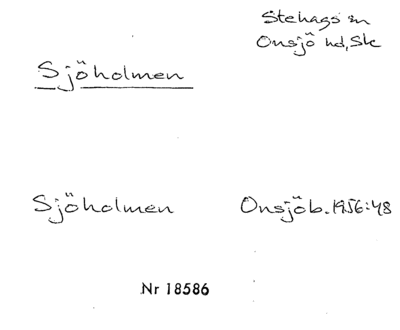 Stehags sn
Onsjö hd, Sk
Sjöholmen
Sjöholmen Onsjöb. 1956:48
Nr 18586